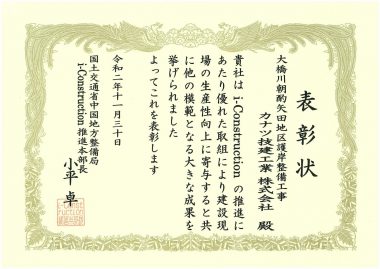 表彰状
大橋川朝酌矢田地区護岸整備工事
カナツ技建工業 株式会社 殿
貴社は i-Construction の推進に
あたり優れた取組により建設現
場の生産性向上に寄与すると共
に他の模範となる大きな成果を
挙げられました
よってこれを表彰します
令和二年十一月三十日
国土交通省中国地方整備局
i-Construction 推進本部長
小平 卓